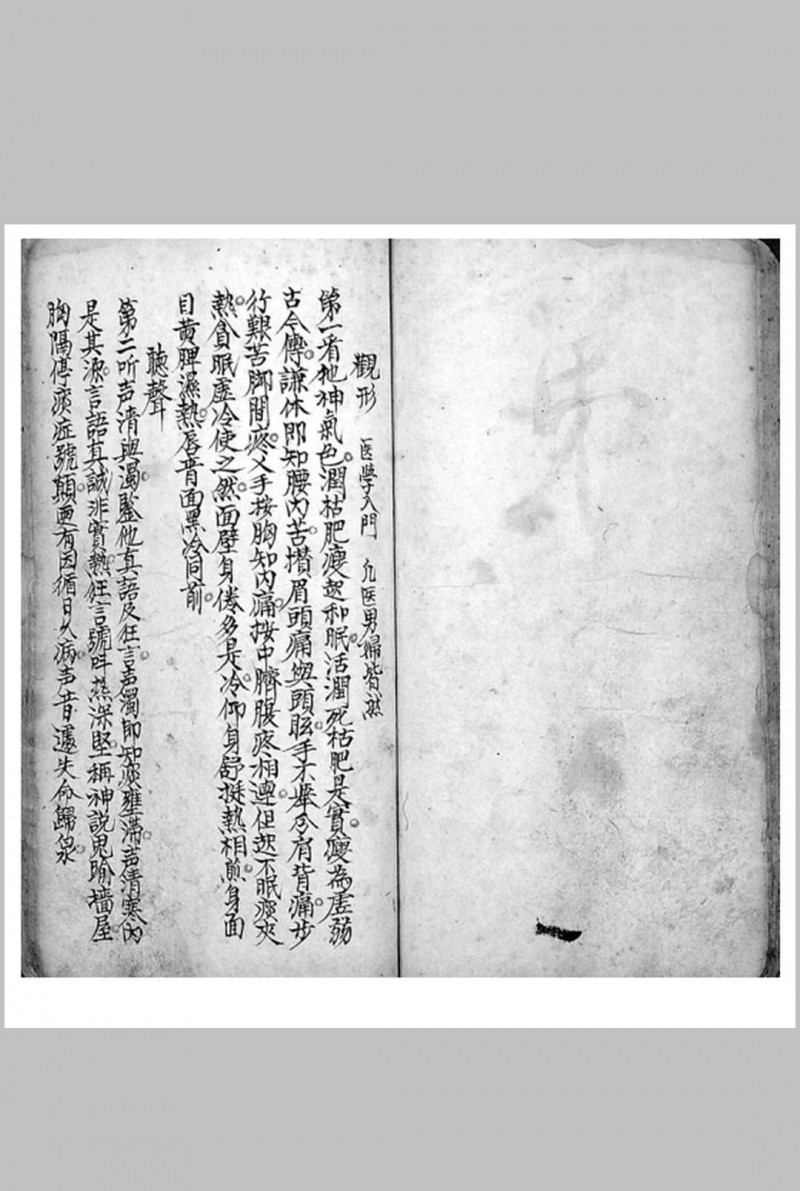 觀形 医学入門 凡医男婦皆然
第一看他神氣色潤枯肥瘦起和眠活潤死枯肥是實瘦為虛弱
古今傳謙休即知腰內苦攅眉頭痛與頭眩手不舉兮肩背痛步
行艱苦脚間疼乂手按胸知內痛按中臍腹疼相連但起不眠痰夾
熱貪眠虛冷使之然面壁身倦多是冷仰身舒挺熱相煎身面
目黄脾濕熱唇青面黑冷同前
聽聲
第二听声清與濁鑒他真語及狂言声濁即知痰壅滯声清寒內
是其源言語真誠非實熱狂言號呌熱深堅稱神說鬼踰墻屋
胸隔停痰症號顛更有因循日久病声音遽失命歸泉